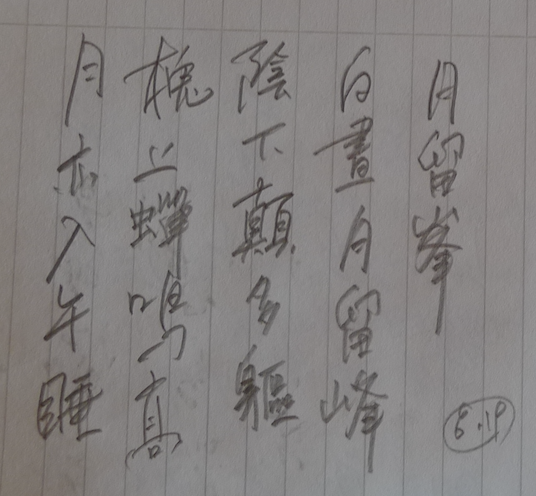 月留峯
白晝月留峰
陰下顛多軀
槐上蟬鳴高
月亦入午睡
8.19